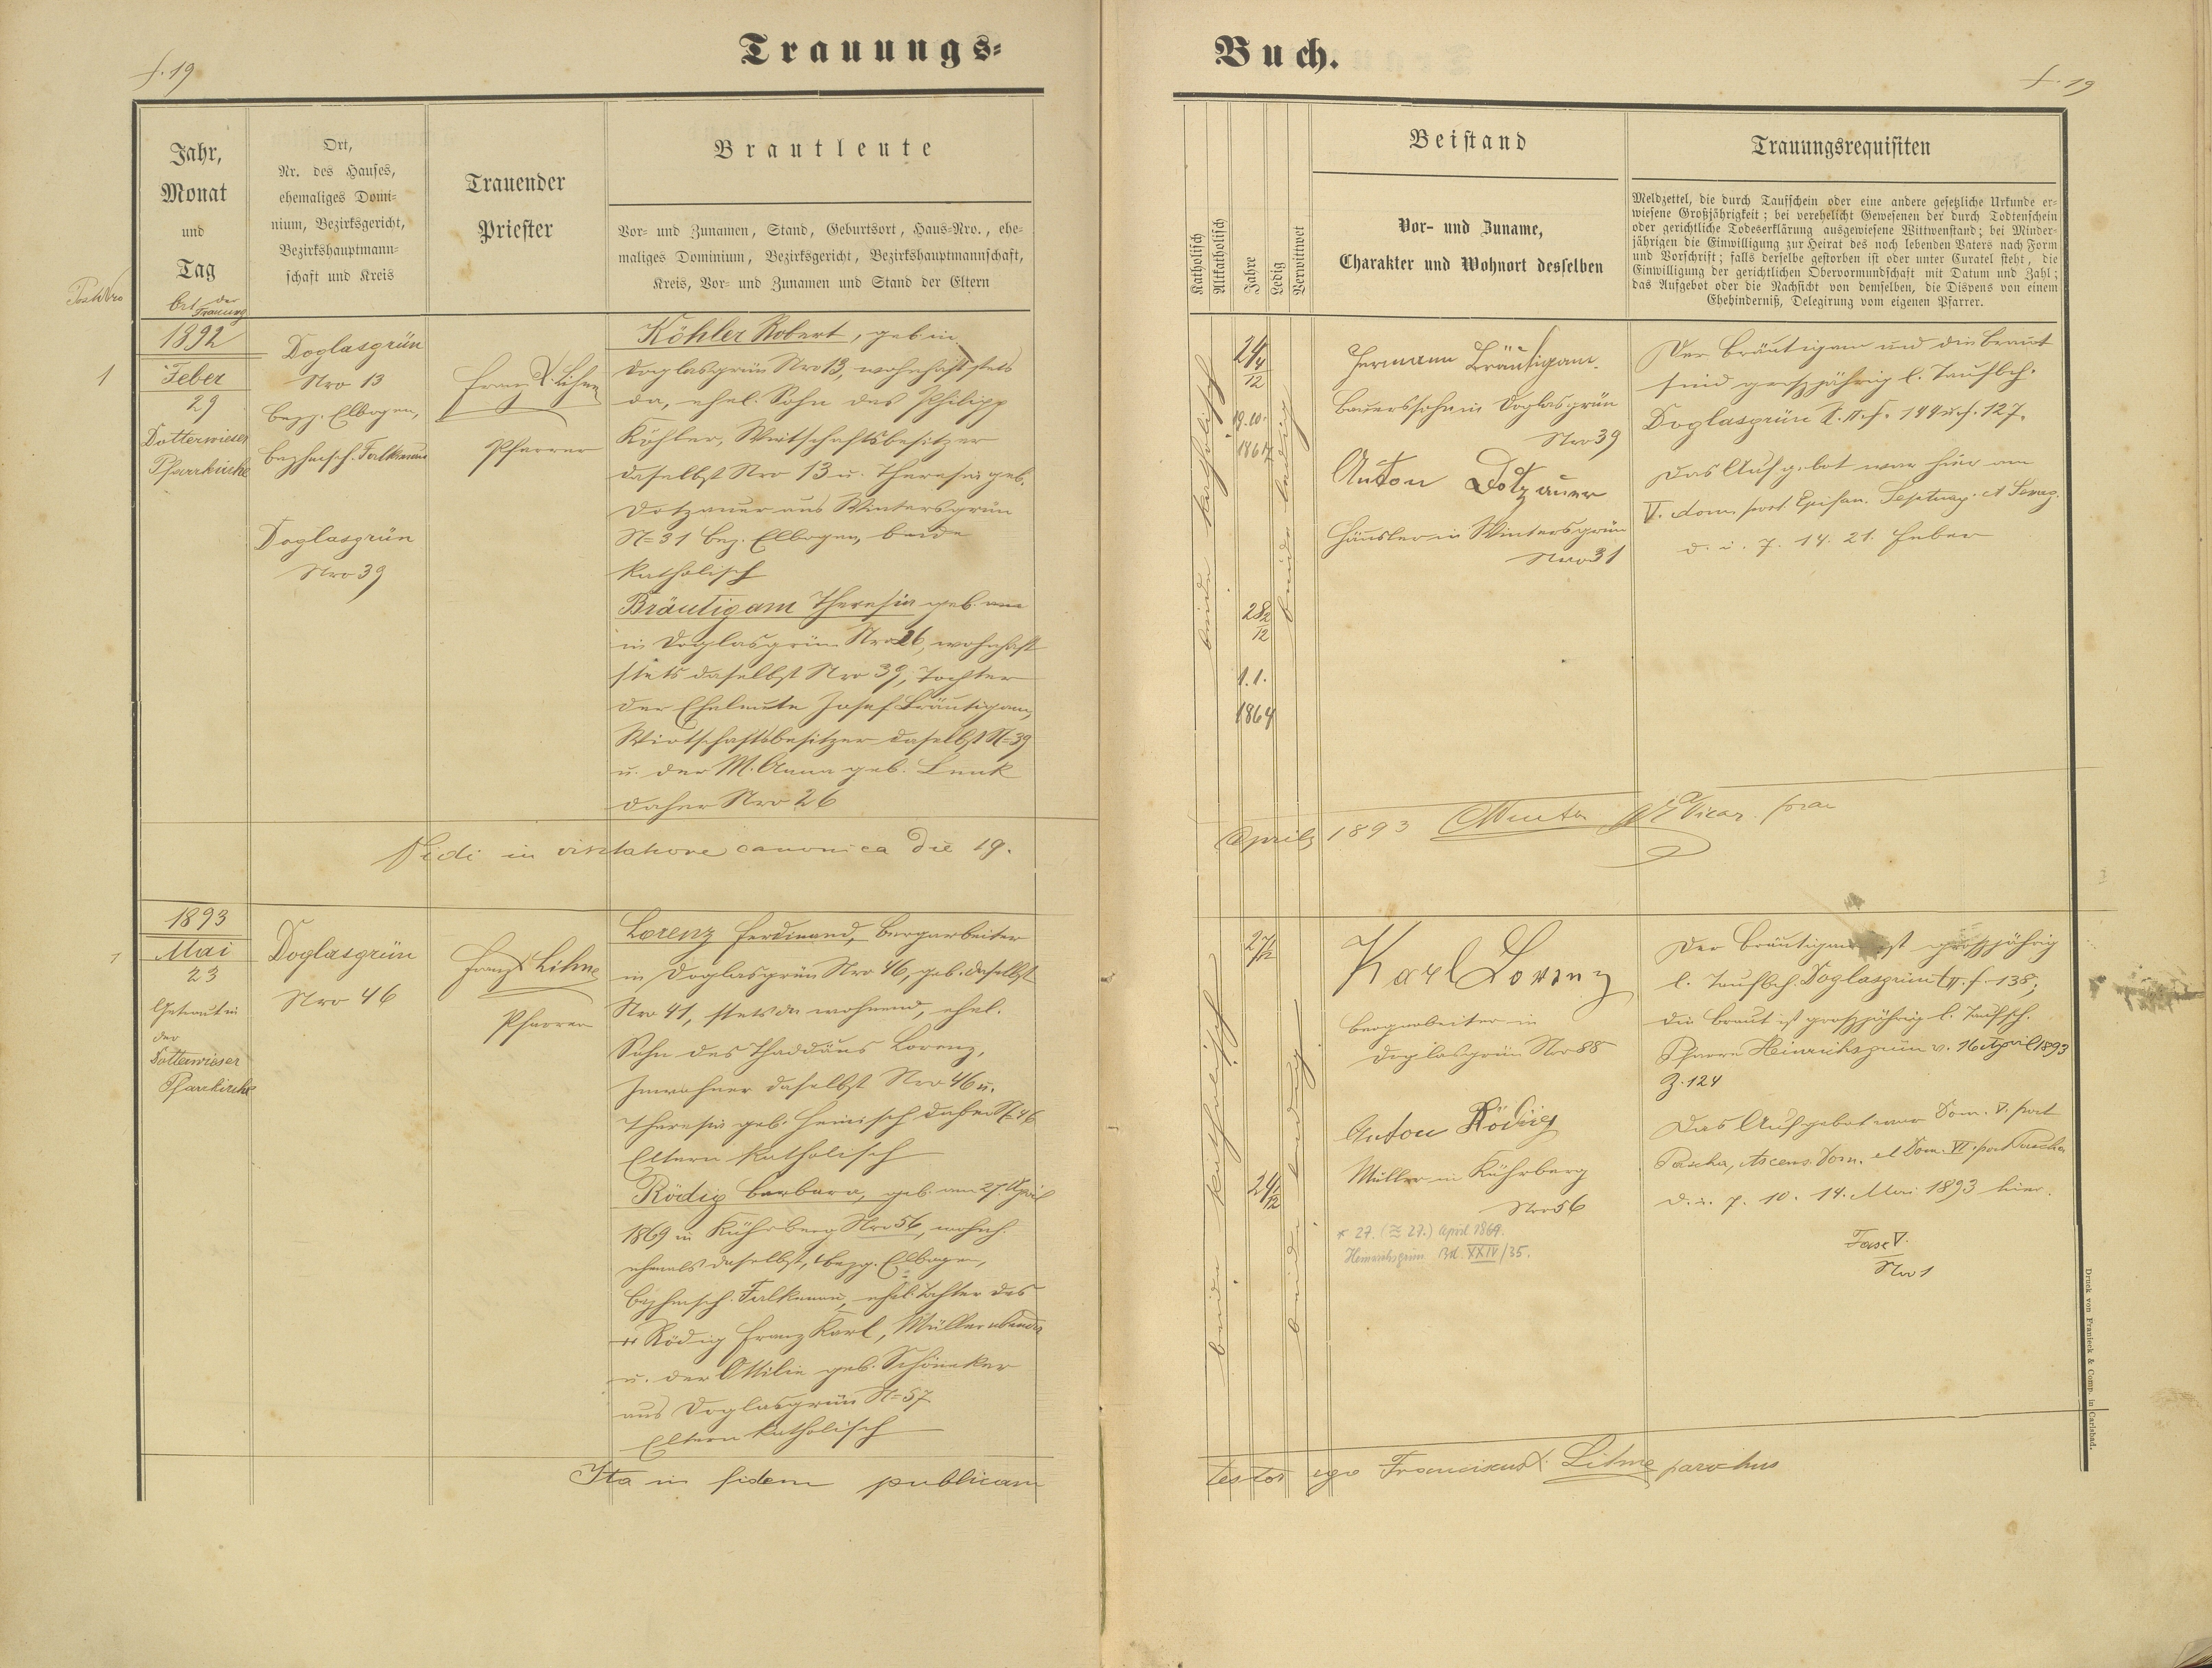 Trauungs-
Buch.
f. 19
f. 19
Jahr,
Monat
und
Tag
Ort der
Trauung
Ort,
Nr. des Hauses,
ehemaliges Domi-
nium, Bezirksgericht,
Bezirkshauptmann-
schaft und Kreis
Trauender
Priester
Brautleute
Vor- und Zunamen, Stand, Geburtsort, Haus-Nro., ehe-
maliges Dominium, Bezirksgericht, Bezirkshauptmannschaft,
Kreis, Vor- und Zunamen und Stand der Eltern
Katholisch
Altkatholisch
Jahre
Ledig
Verwittwet
Beistand
Vor- und Zuname,
Charakter und Wohnort desselben
Trauungsrequisiten
Meldzettel, die durch Taufschein oder eine andere gesetzliche Urkunde er-
wiesene Großjährigkeit; bei verehelicht Gewesenen der durch Todtenschein
oder gerichtliche Todeserklärung ausgewiesene Wittwenstand; bei Minder-
jährigen die Einwilligung zur Heirat des noch lebenden Vaters nach Form
und Vorschrift; falls derselbe gestorben ist oder unter Curatel steht, die
Einwilligung der gerichtlichen Obervormundschaft mit Datum und Zahl;
das Aufgebot oder die Nachsicht von demselben, die Dispens von einem
Ehehinderniß, Delegirung vom eigenen Pfarrer.
1
1892
Feber
29
Dotterwieser
Pfarrkirche
Doglasgrün
Nro 13
Bezg. Elbogen,
Bezhmsch. Falkenau
Doglasgrün
Nro 39
Franz X. Lihne
Pfarrer
Köhler Robert, geb. in
Doglasgrün Nro 13, wohnhaft stets
da, ehel. Sohn des Philipp
Köhler, Wirtschaftsbesitzer
daselbst Nro 13 u. Theresia geb.
Dotzauer aus Wintersgrün
N=31 Bez. Elbogen, beide
katholisch
Bräutigam Theresia geb.
in Doglasgrün Nro 26, wohnhaft
stets daselbst Nro 39, Tochter
der Eheleute Josef Bräutigam,
Wirtschaftsbesitzer daselbst N=39
u. der M. Anna geb. Lenk
daher Nro 26
beide katholisch
24 4/12
19.10.
1867
28 2/12
1.1.
1864
beide ledig
Hermann Bräutigam.
Bauerssohn in Doglasgrün
Nro 39
Anton Dotzauer
Häusler in Wintersgrün
Nro 31
Der Bräutigam und die Braut
sind großjährig l. Taufbch.
Doglasgrün T. II. f. 144 u. f. 127.
Das Aufgebot war hier am
V. dom. post Epifan. Septuag. et Sexag.
d. i. 7. 14. 21. Feber
Vidi in visitatione canonica die 19.
Aprilis 1893 Vicar. for.
1
1893
Mai
23
Getraut in
der
Dotterwieser
Pfarrkirche
Doglasgrün
Nro 46
Franz X. Lihne
Pfarrer
Lorenz Ferdinand, Bergarbeiter
in Doglasgrün Nro 46, geb. daselbst
Nro 41, stets da wohnend, ehel.
Sohn des Thaddäus Lorenz,
Inwohner daselbst Nro 46 u.
Theresia geb. Heinisch daher N=46
Eltern katholisch
Rödig Barbara, geb. am 27. April
1869 in Kührberg Nro 56, wohnh.
ehemals daselbst, Bezg. Elbogen,
Bezhmsch. Falkenau, ehel. Tochter des
Rödig Franz Karl, Müller
u. der Ottilie geb. Schöneker
aus Doglasgrün N=57
Eltern katholisch
beide katholisch
24 1/12
beide ledig
Karl Lorenz
Bergarbeiter in
Doglasgrün Nro 88
Anton Rödig
Müller in Kührberg
Nro 56
* 27. (≈ 27.) April 1869.
Heinrichsgrün Bd. XXIV/35.
Der Bräutigam ist großjährig
l. Taufbch. Doglasgrün t. II. f. 138;
die Braut ist großjährig l. Taufsch.
Pfarre Heinrichsgrün v. 16 April 1893
Z. 124
Das Aufgebot war Dom. V. post
Pascha, Ascens. Dom. et Dom. VI. post Pascha
d. i. 7. 10. 14. Mai 1893 hier.
Fasc V.
Nro 1
Ita in fidem publicam
testor ego Franciscus X. Lihne parochus
Druck von Franieck & Comp. in Carlsbad.